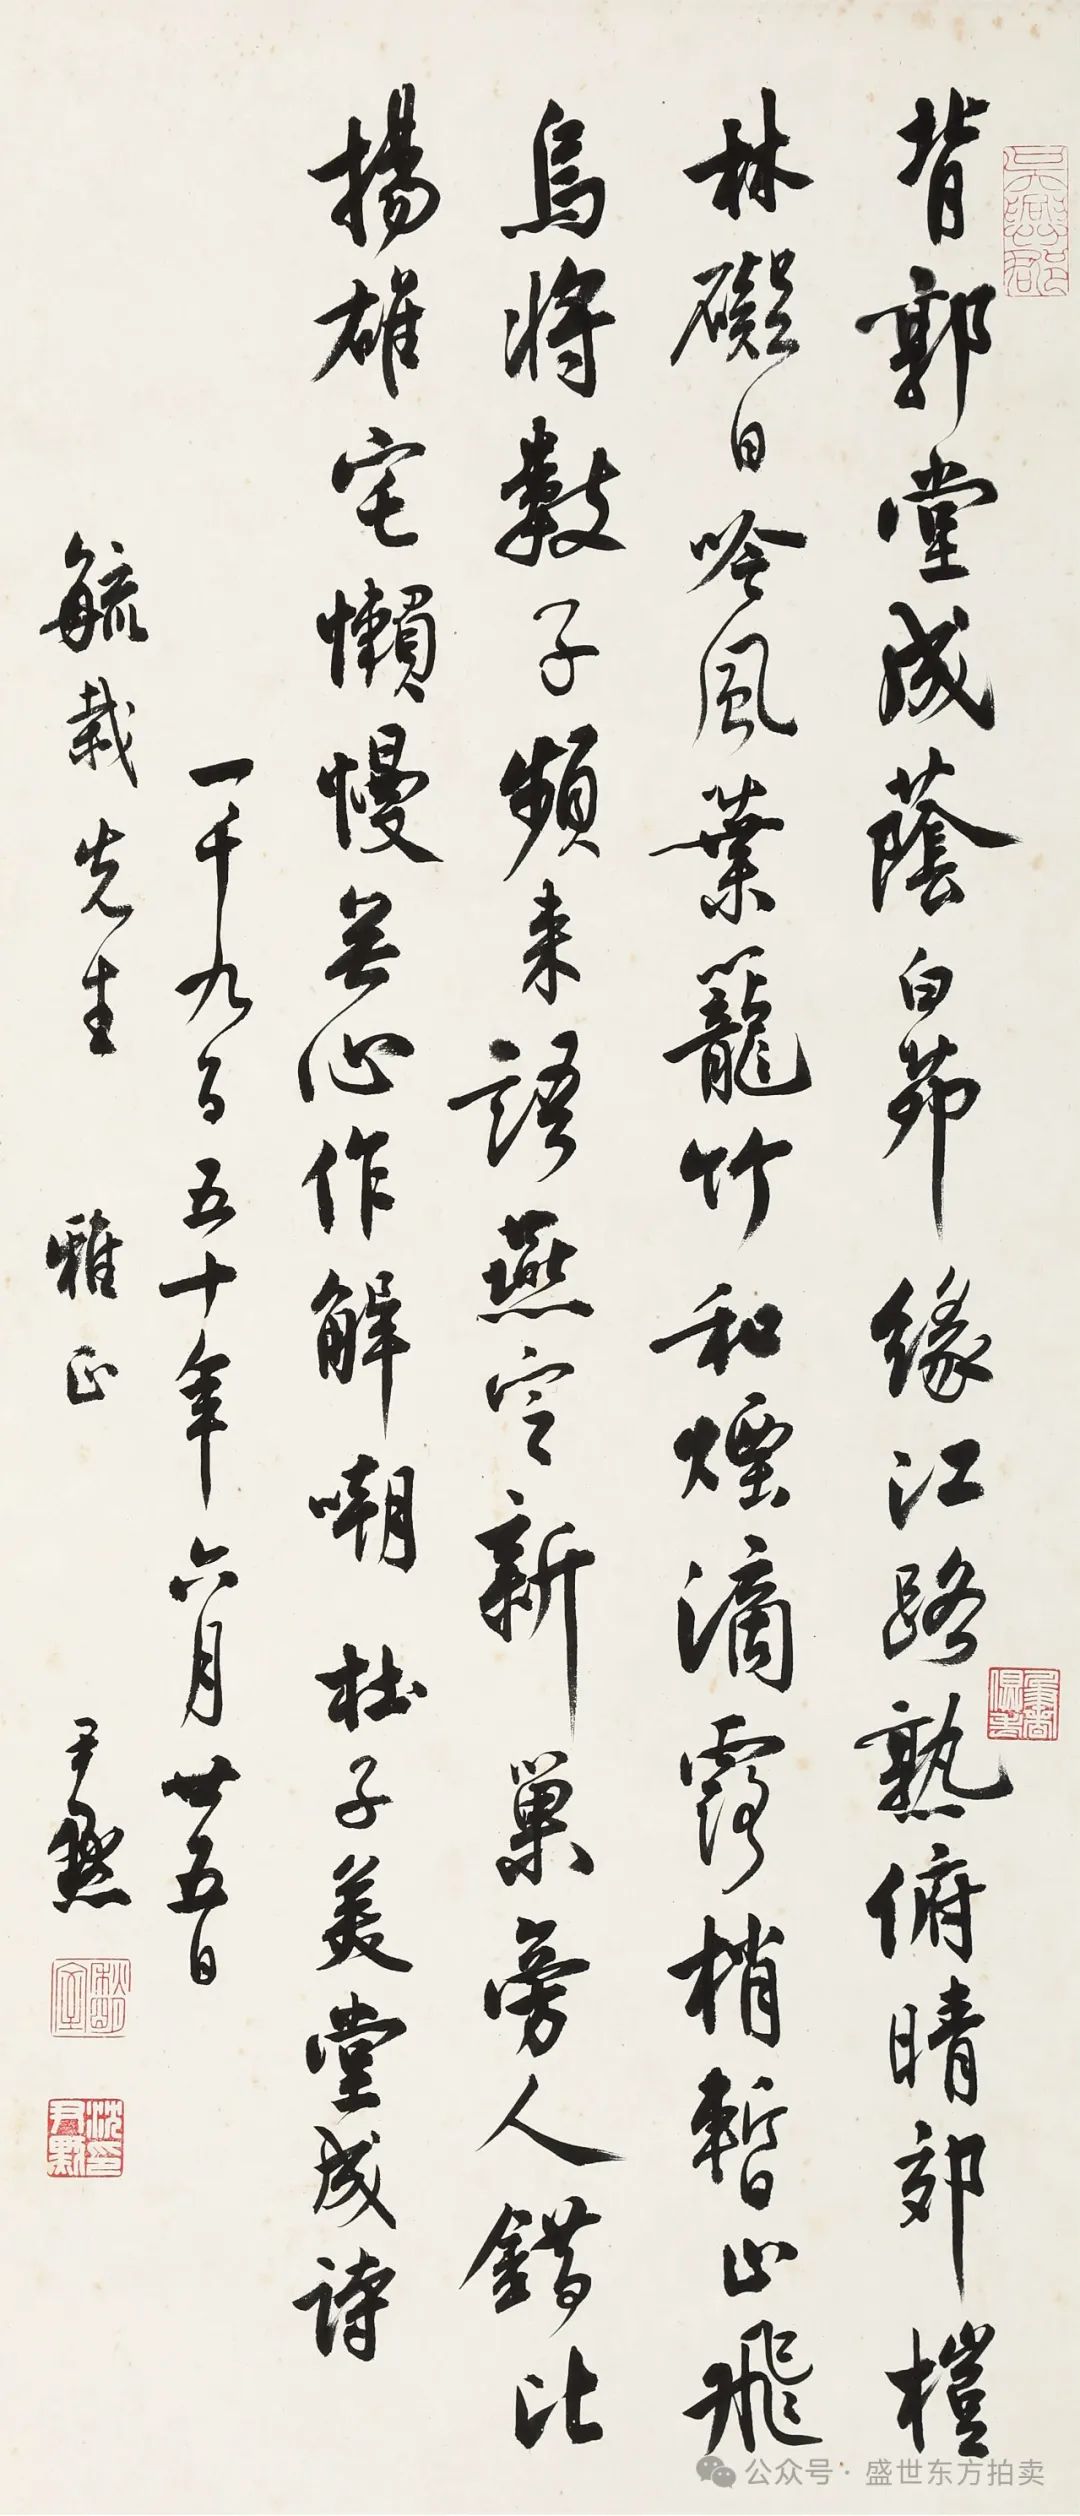 背郭堂成蔭白茆緣江路熟俯晴郊榿
林礙日吟風葉籠竹和煙滴露梢暫止飛
烏將數子頻來語燕定新巢旁人錯比
揚雄宅懶慢無心作解嘲 杜子美堂成詩
一千九百五十年六月廿五日
毓栽先生 雅正 尹默
沈印尹默
公众号·盛世东方拍卖